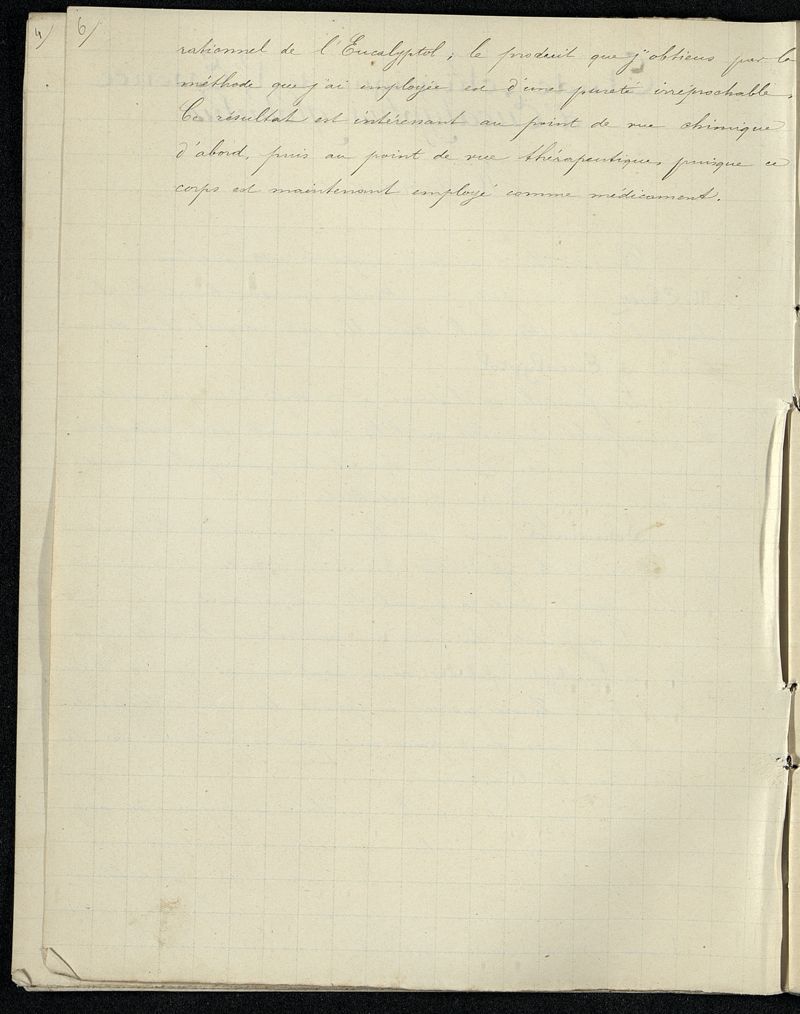 4/ 6/
rationnel de l'Eucalyptol; le produit que j'obtiens par la
méthode que j'ai employée est d'une pureté irréprochable.
Ce résultat est intéressant au point de vue chimique
d'abord, puis au point de vue thérapeutique, puisque ce
corps est maintenant employé comme médicament.